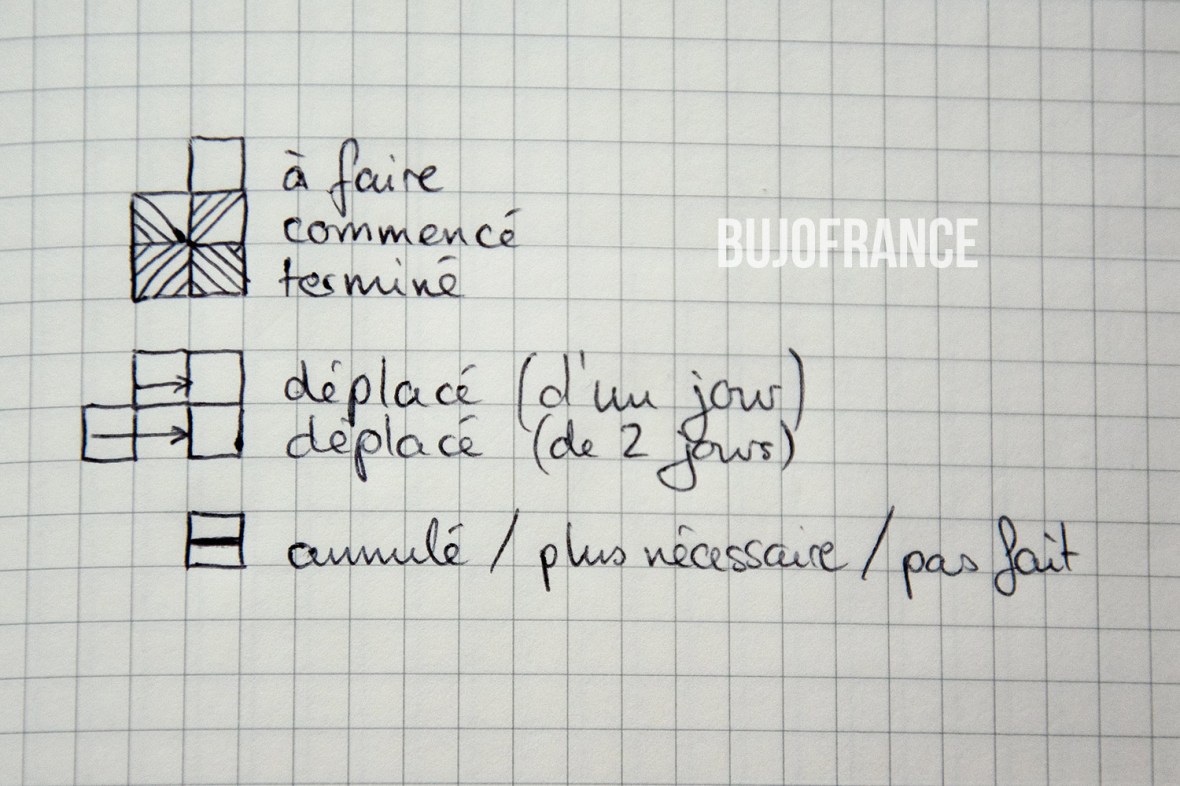 à faire
commencé
BUJOFRANCE
terminé
déplacé (d'un jour)
déplacé (de 2 jours)
annulé / plus nécessaire / pas fait